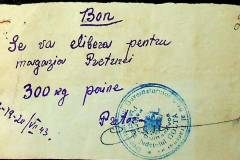 Bon
Se va elibera pentru
magazia Preturei
300 kg paine
19-20/VII 43.
Pretor